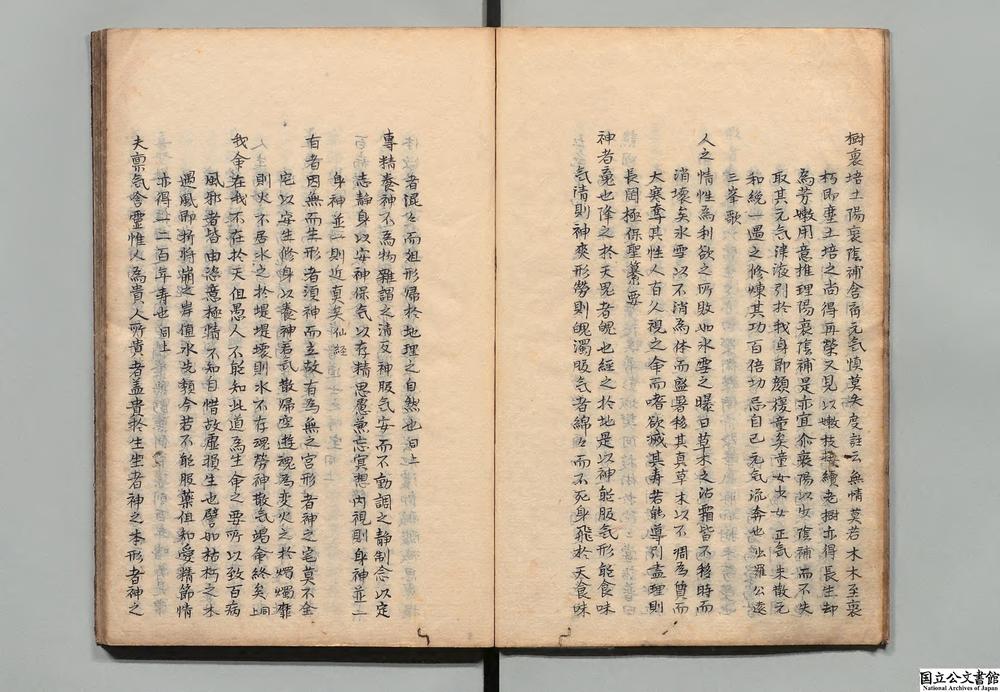 樹裏培土陽衰陰補含育元気慎莫失度註云無情莫若木木至衰
朽即塵土培之尚得再榮又見以嫩枝接續老樹亦得長生却
為芳嫩用意推理陽衰陰補是亦宜尒衰陽以少陰補而不失
取其元气津液引於我身即顔復童矣童女少女正气未散元
和純一遇之修煉其功百倍切忌自己元气流奔也
三峯歌
人之情性為利欲之所敗如冰雪之曝日草木之沾霜皆不移時而
消壊矣冰雪以不消為体而盛暑移其真草木以不凋為質而
大寒奪其性人百久視之命而嗜欲滅其壽若能導引盡理則
長罔極保聖纂要
神者䰟也降之於天鬼者魄也經之於地是以神能服气形能食味
气清則神爽形勞則魄濁服气者綿々而不死身飛於天食味
者混々而殂形帰於地理之自然也同上
專精養神不為物雜謂之清反神服气安而不動調之静制念以定
志静身以安神保气以存精思慮兼忘冥想内視則身神並一
身神並一則近真矣仙經
有者因無而生形者須神而立故有為無之宮形者神之宅莫不全
宅以安生修身以養神若气散帰空遊魂為変火之於燭燭靡
則火不居水之於堤堤壊則水不存魂勞神散气竭命終矣同上
我命在我不在於天但愚人不能知此道為生命之要所以致百病
風邪者皆由恣意極情不知自惜故虚損生也譬如枯朽之木
遇風即折將崩之岸值水先頽今若不能服薬但知愛精節情
亦得一二百年壽也同上
夫禀气含靈惟人為貴人所貴者盖貴於生生者神之本形者神之
国立公文書館
National Archives of Japan